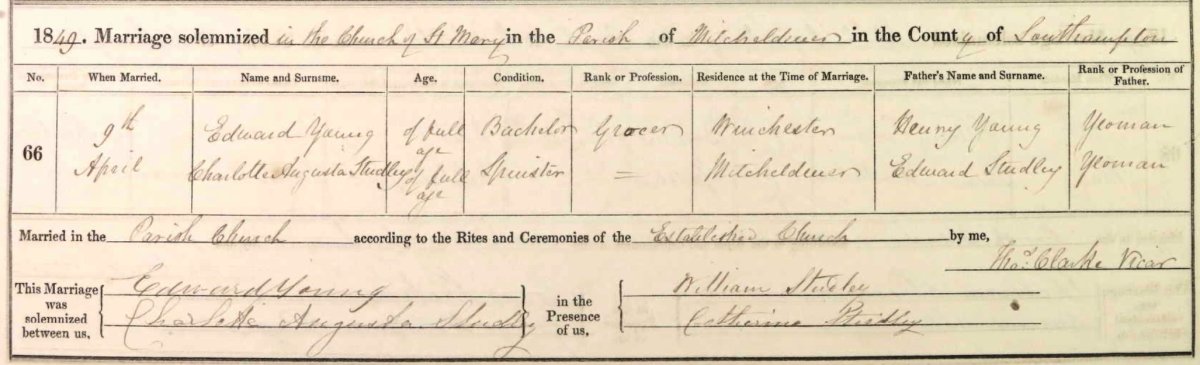 1849. Marriage solemnized in the Church of St Mary in the Parish of Micheldever in the County of Southampton
No. When Married. Name and Surname. Age. Condition. Rank or Profession. Residence at the Time of Marriage. Father's Name and Surname. Rank or Profession of Father.
66
9th Edward Young of full age Bachelor Grocer Winchester Henny Young Yeoman
April Charlotte Augusta Studley of full age Spinster = Micheldever Edward Studley Yeoman
Married in the Parish Church according to the Rites and Ceremonies of the Established Church by me,
Thos Clarke Vicar
This Marriage was solemnized between us, Edward Young Charlotte Augusta Studley in the Presence of us, William Studley Catherine Studley